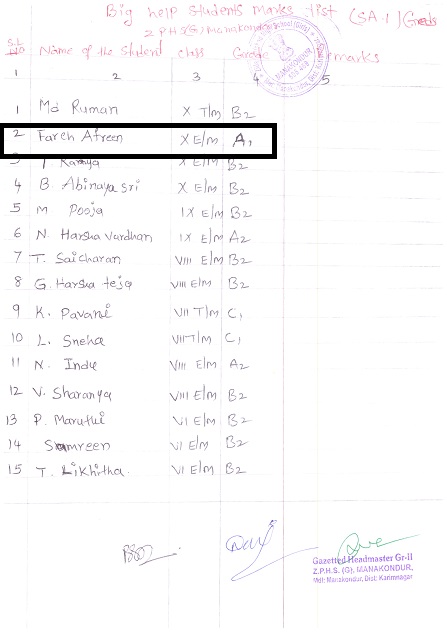 Big help students marks list (SA-1) Grades
Z P H S (G) Manakondur
S.L No Name of the Student class Grade Remarks
1 2 3 4 5
1 Md Ruman X T/m B2
2 Fareh Afreen X E/m A1
3 T. Kavya X E/m B2
4 B. Abinaya sri X E/m B2
5 M Pooja IX E/m B2
6 N. Harsha vardhan IX E/m A2
7 T. Saicharan VIII E/m B2
8 G. Harsha teja VIII E/m B2
9 K. Pavani VII T/m C1
10 L. Sneha VII T/m C1
11 N. Indu VIII E/m A2
12 V. Sharanya VIII E/m B2
13 P. Maruthi VI E/m B2
14 Samreen VI E/m B2
15 T. Likhitha. VI E/M B2
Gazetted Headmaster Gr-II
Z.P.H.S. (G). MANAKONDUR,
Mdl: Manakondur, Dist: Karimnagar